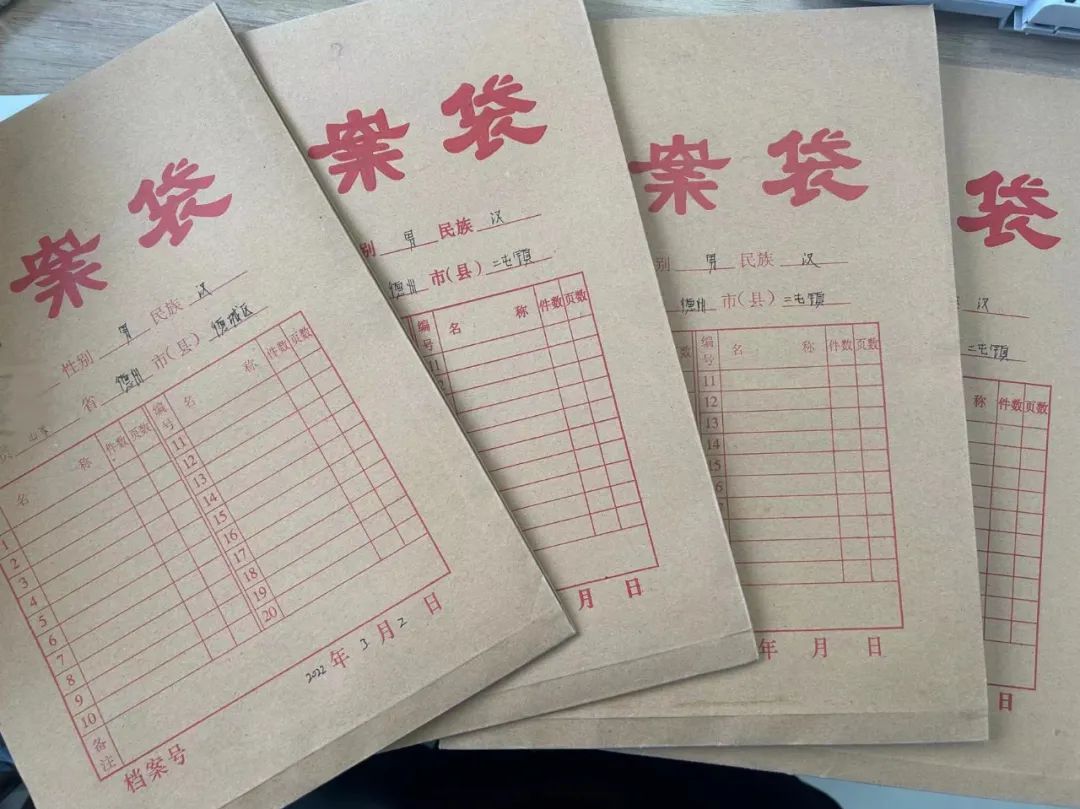 案袋
性别 男 民族 汉
山东 省 德州 市(县) 德城区
名 称 件数 页数 编号 名 称 件数 页数
1 11
2 12
3 13
4 14
5 15
6 16
7 17
8 18
9 19
10 20
备注
2022年3月2日
档案号
案袋
别 男 民族 汉
德州 市(县) 二屯镇
编号 名 称 件数 页数
11
月 日
案袋
别 男 民族 汉
德州 市(县) 二屯镇
数 编号 名 称 件数 页数
11
12
13
14
15
6
年 月 日
袋
汉
二屯镇
称 件数 页数
日